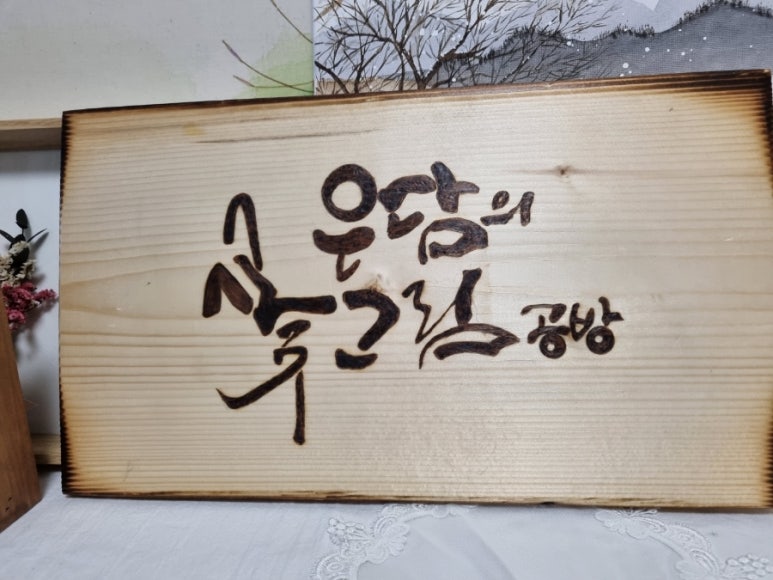 운담의
그림 공방